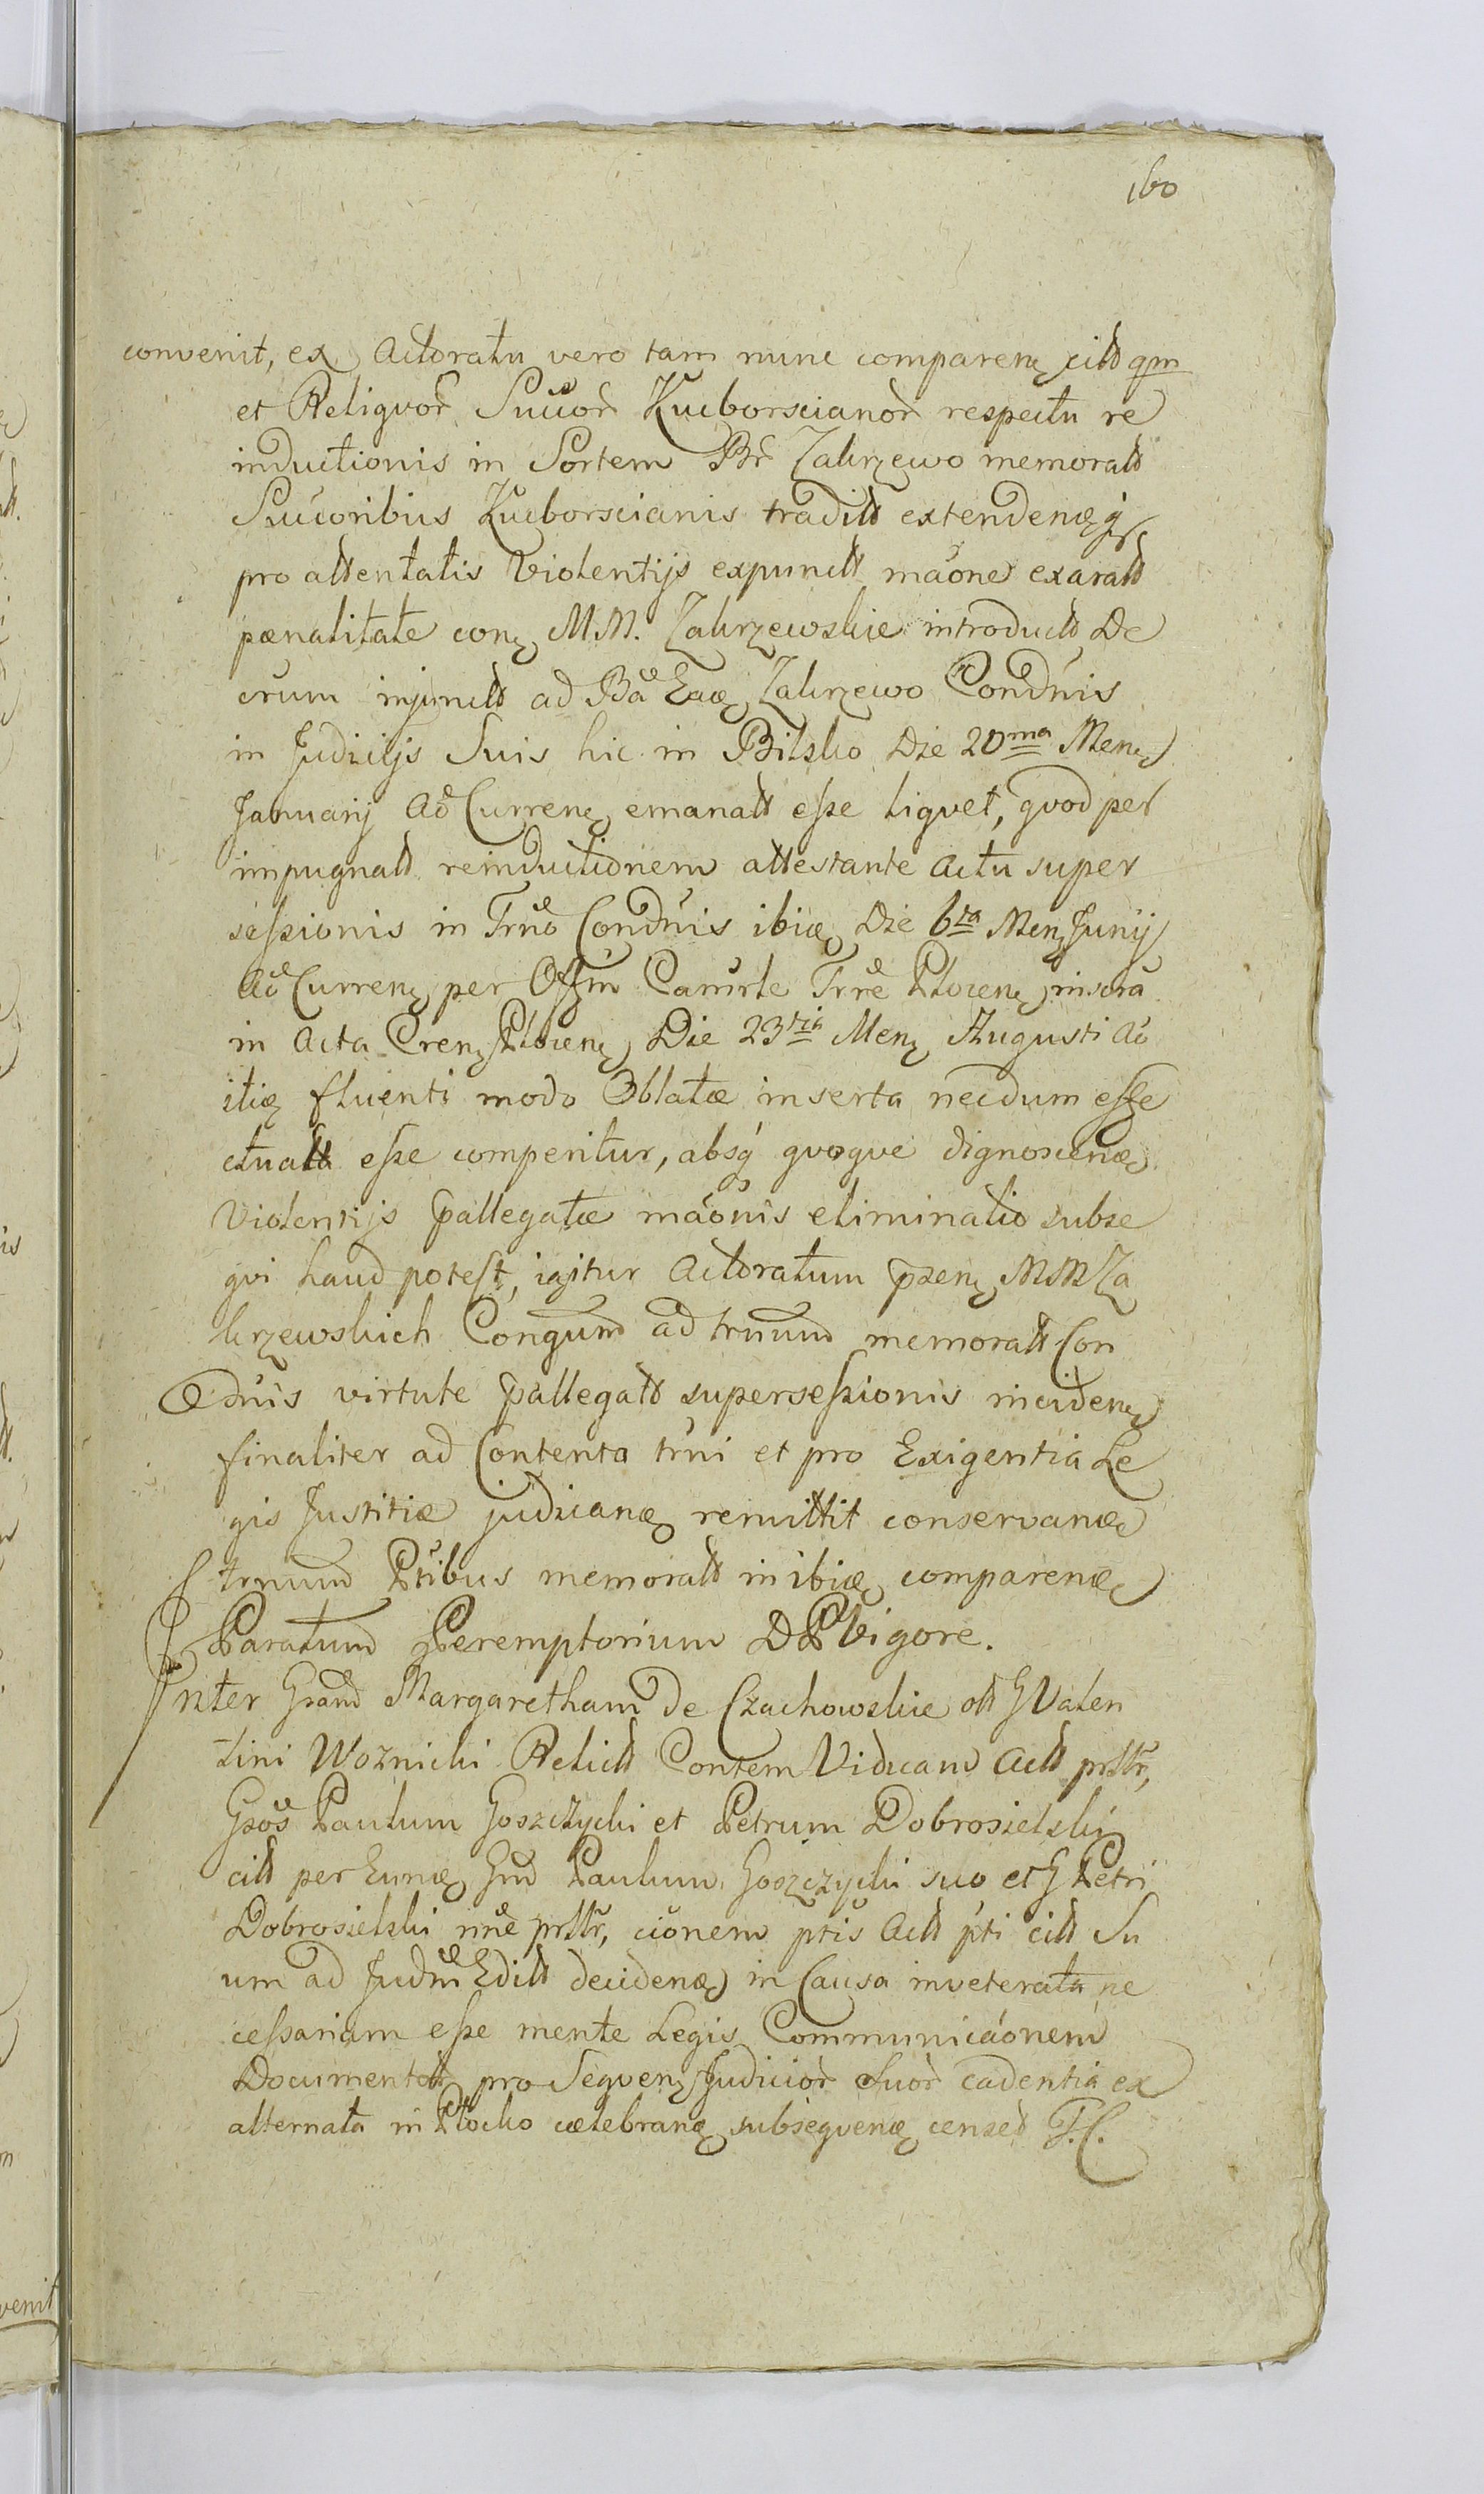 160
convenit, ex Actoratu vero tam nunc comparenę citt qm
et Religvor̃ Succor̃ Kucborscianor̃ respectu re
inductionis in Sortem Br̃ Zakrzewo memoratt
Succoribus Kucborscianis traditt extendenæq́
pro attentatis Violentijs expunctt mãone exaratt
pænalitate conę MM. Zakrzewskie introductt De
crum injunctt ad Bã Eaæ Zakrzewo Condũis
in Judicijs Suis hic in Bilsko Die 20ma Menę
Januarij Aõ Currenę emanatt eſse liqvet, qvod per
impugnatt reinductionem attestante Actu super
seſsionis in Trñõ Condũis ibiæ Die 6ta Menę Junij
Aõ Currenę per Offm Camrle Trrẽ Plocenę in sera
in Acta Crenę Plocenę Die 23tia Menę Augusti Aõ
itiæ fluenti modo Oblatæ inserta necdum effe
ctuatt eſse comperitur, absq́ qvoqve dignoscenæ
Violentijs p̃allegatæ mãonis eliminatio subse
qvi haud poteſt, igitur Actoratum p̃senę MM Za
krzewskich Congum̃ ad trnum̃ memoratt Con
dũis virtute p̃allegatt superseſsionis incidenę
finaliter ad Contenta trñi et pro Exigentia Le
gis Justitiæ judicanæ remittit conservanæ
trnum̃ Ptibus memoratt in ibiæ comparenæ
Paratum Peremptorium DP Vigore.
Inter Grand Margaretham de Czachowskie ott G Valen
tini Woznicki Relictt Contem Viduam Actt prttr̃,
Gsõs Paulum Goszczycki et Petrum Dobrosielski
citt per Eunæ Gm̃ Paulum Goszczycki suo et G Petri
Dobrosielski nñe prttr̃, cĩonem ptis Actt pti citt Su
um ad Judm̃ Editt decidenæ in Causa inveterata ne
ceſsariam eſse mente Legis Communicãonem
Documentott pro Seqvenę Judicior̃ Suor̃ cadentia ex
alternata in Plocko cælebranæ subseqvenæ censed T.C.